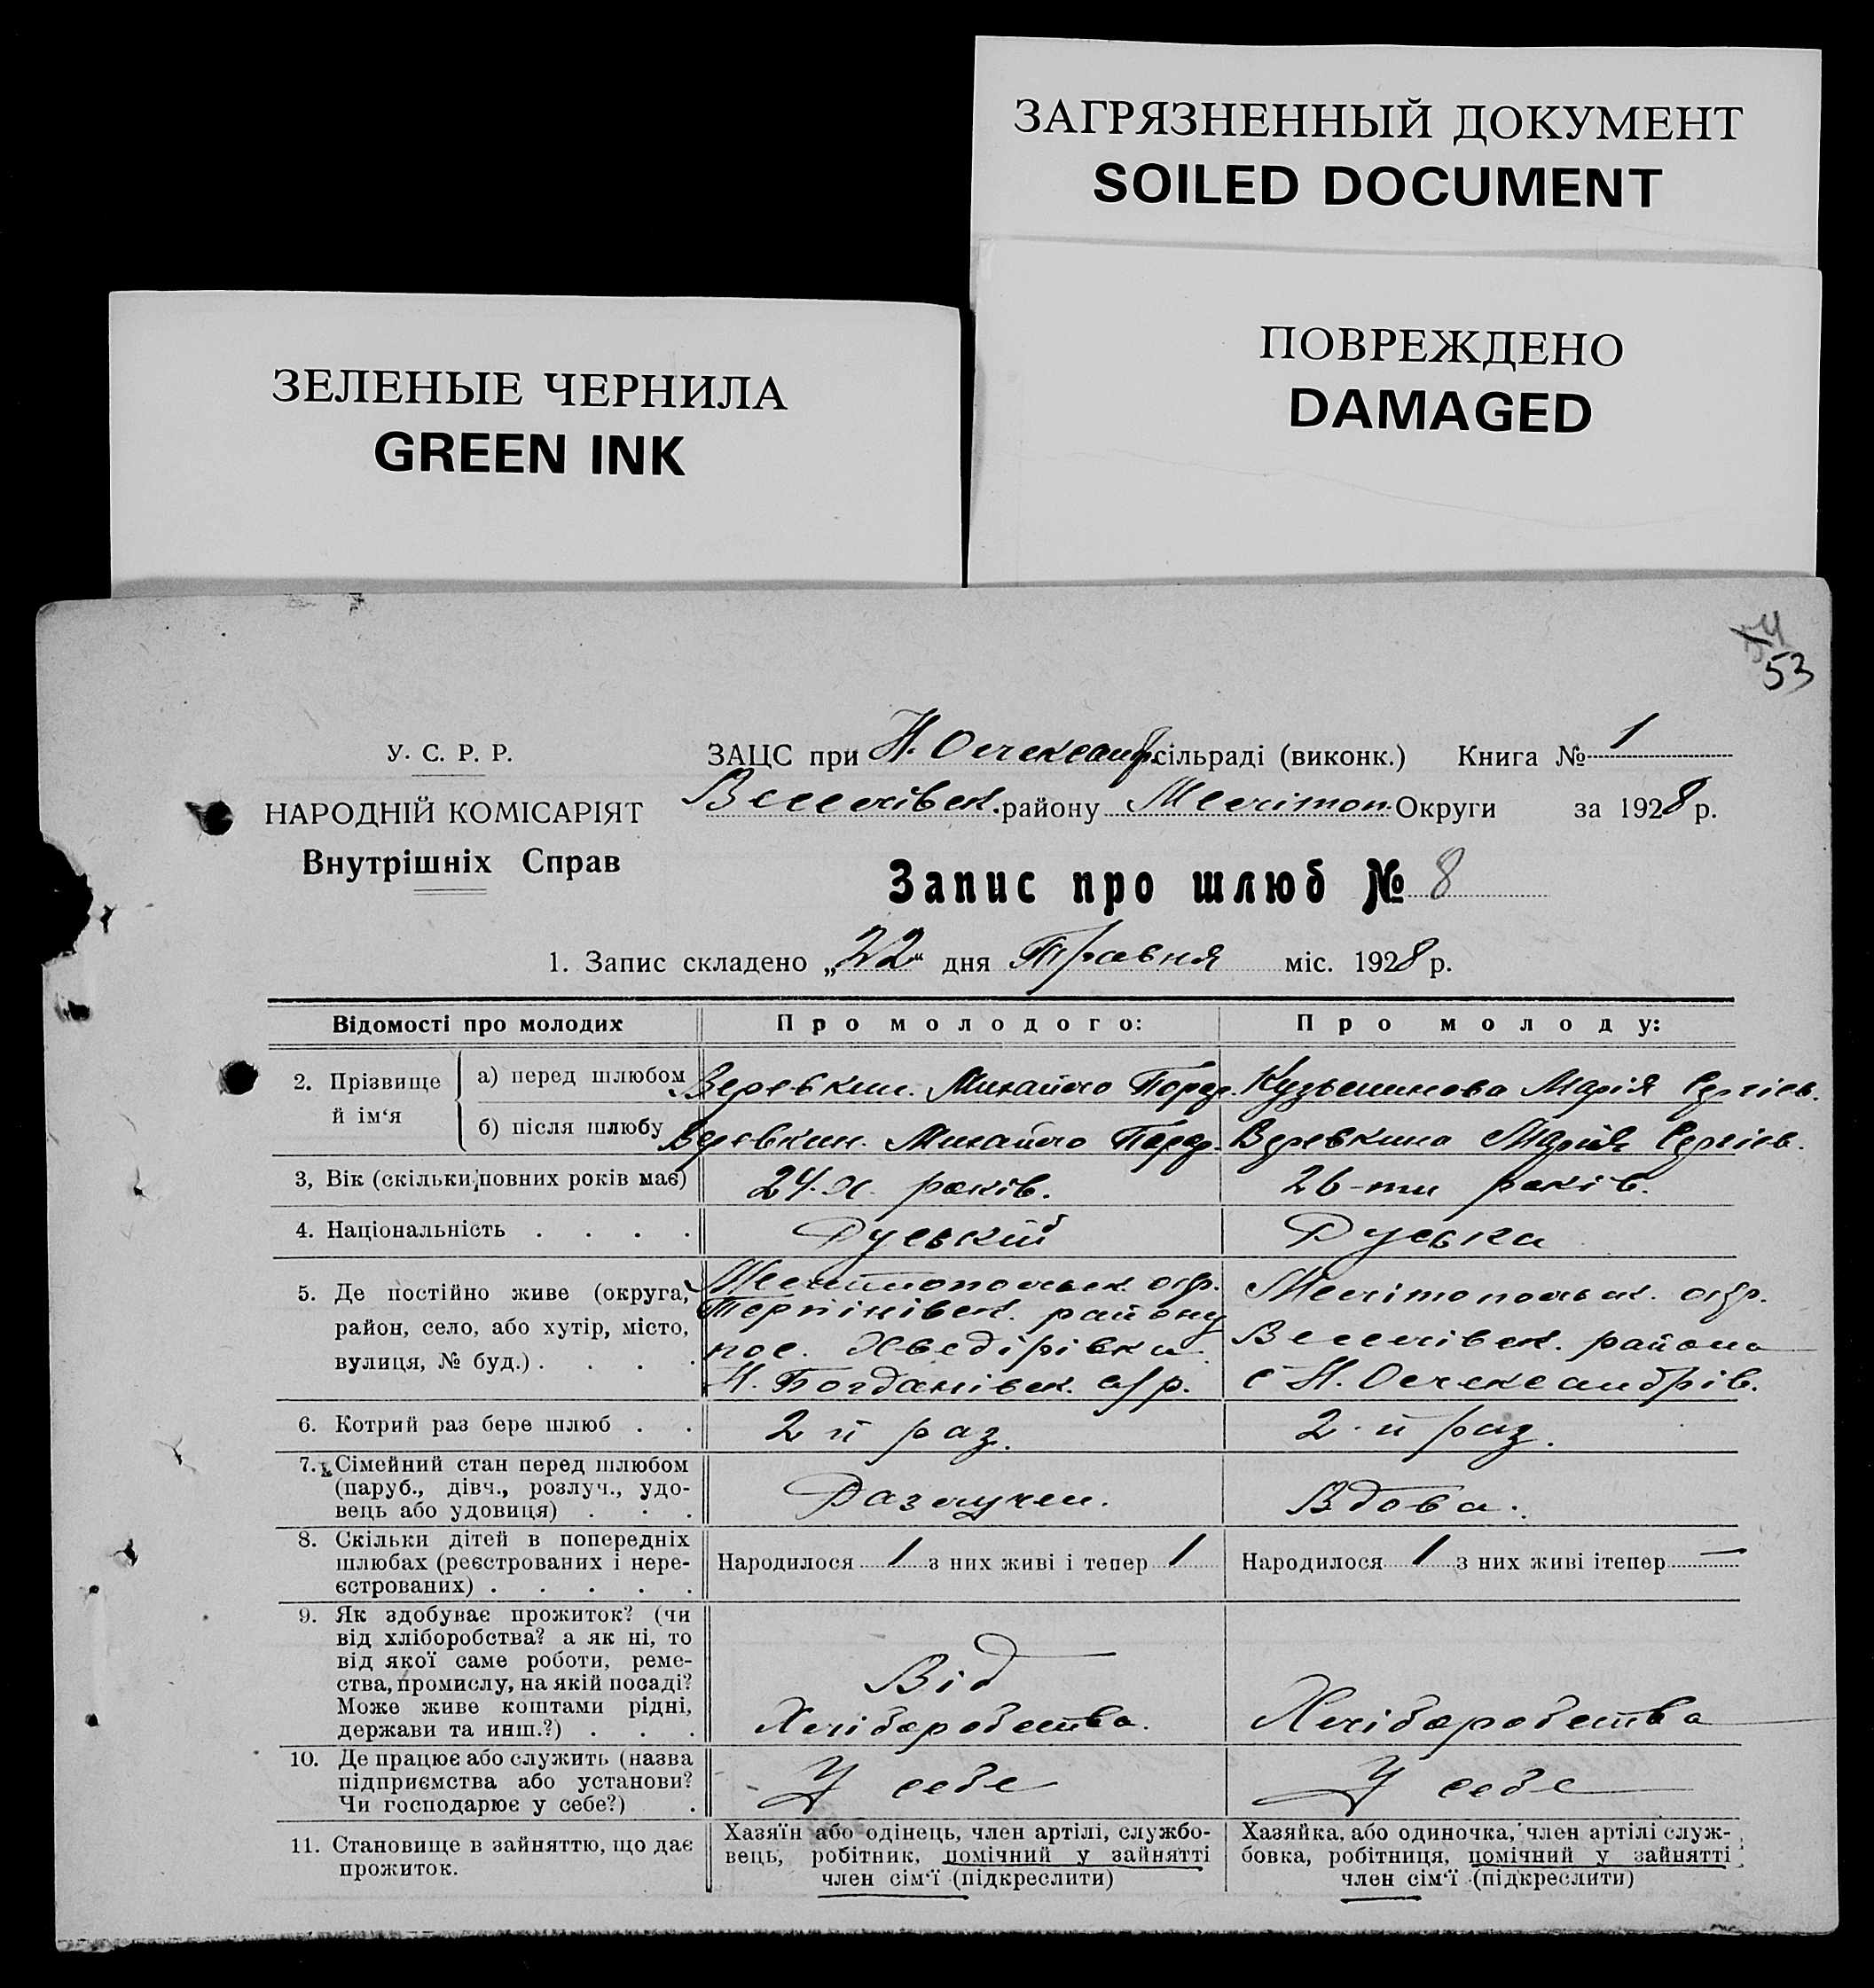 ЗАГРЯЗНЕННЫЙ ДОКУМЕНТ
SOILED DOCUMENT
ЗЕЛЕНЫЕ ЧЕРНИЛА
GREEN INK
ПОВРЕЖДЕНО
DAMAGED
53
У. С. Р. Р.
НАРОДНІЙ КОМІСАРІЯТ
Внутрішніх Справ
ЗАЦС при Н. Олександ. сільраді (виконк.) Книга № 1
Веселівск. району Мелітоп. Округи за 1928 р.
Запис про шлюб № 8
1. Запис складено „22“ дня Травня міс. 1928 р.
Відомості про молодих
Про молодого:
Про молоду:
2. Прізвище й ім‘я
а) перед шлюбом
Веревкин. Михайло Кузьминова Марія Сергієв.
б) після шлюбу
Веревкин. Михайло Веревкина Марія Сергієв.
3, Вік (скільки повних років має)
24-х років.
26-ти років.
4. Національність . . . .
Руський
Руська
5. Де постійно живе (округа, район, село, або хутір, місто, вулиця, № буд.) . . . .
Мелітопольск. окр.
Терпінівск. району
пос. Хведірівка
Н. Богданівск. с/р.
Мелітопольск. окр.
Веселівск. района
с Н. Олександрів.
6. Котрий раз бере шлюб . .
2 й раз.
2-й раз.
7. Сімейний стан перед шлюбом
(паруб., дівч., розлуч., удо-
вець або удовиця) . . .
Разлучен.
Вдова.
8. Скільки дітей в попередніх
шлюбах (реєстрованих і нере-
єстрованих) . . . . .
Народилося 1 з них живі і тепер 1
Народилося 1 з них живі ітепер —
9. Як здобуває прожиток? (чи
від хліборобства? а як ні, то
від якої саме роботи, реме-
ства, промислу, на якій посаді?
Може живе коштами рідні,
держави та инш.?) . . .
Від
Хліборобства.
Хліборобства
10. Де працює або служить (назва
підприємства або установи?
Чи господарює у себе?) .
У себе
У себе
11. Становище в зайняттю, що дає
прожиток.
Хазяїн або одінець, член артілі, службо-
вець, робітник, помічний у зайнятті
член сім‘ї (підкреслити)
Хазяйка, або одиночка, член артілі служ-
бовка, робітниця, помічний у зайнятті
член сім‘ї (підкреслити)